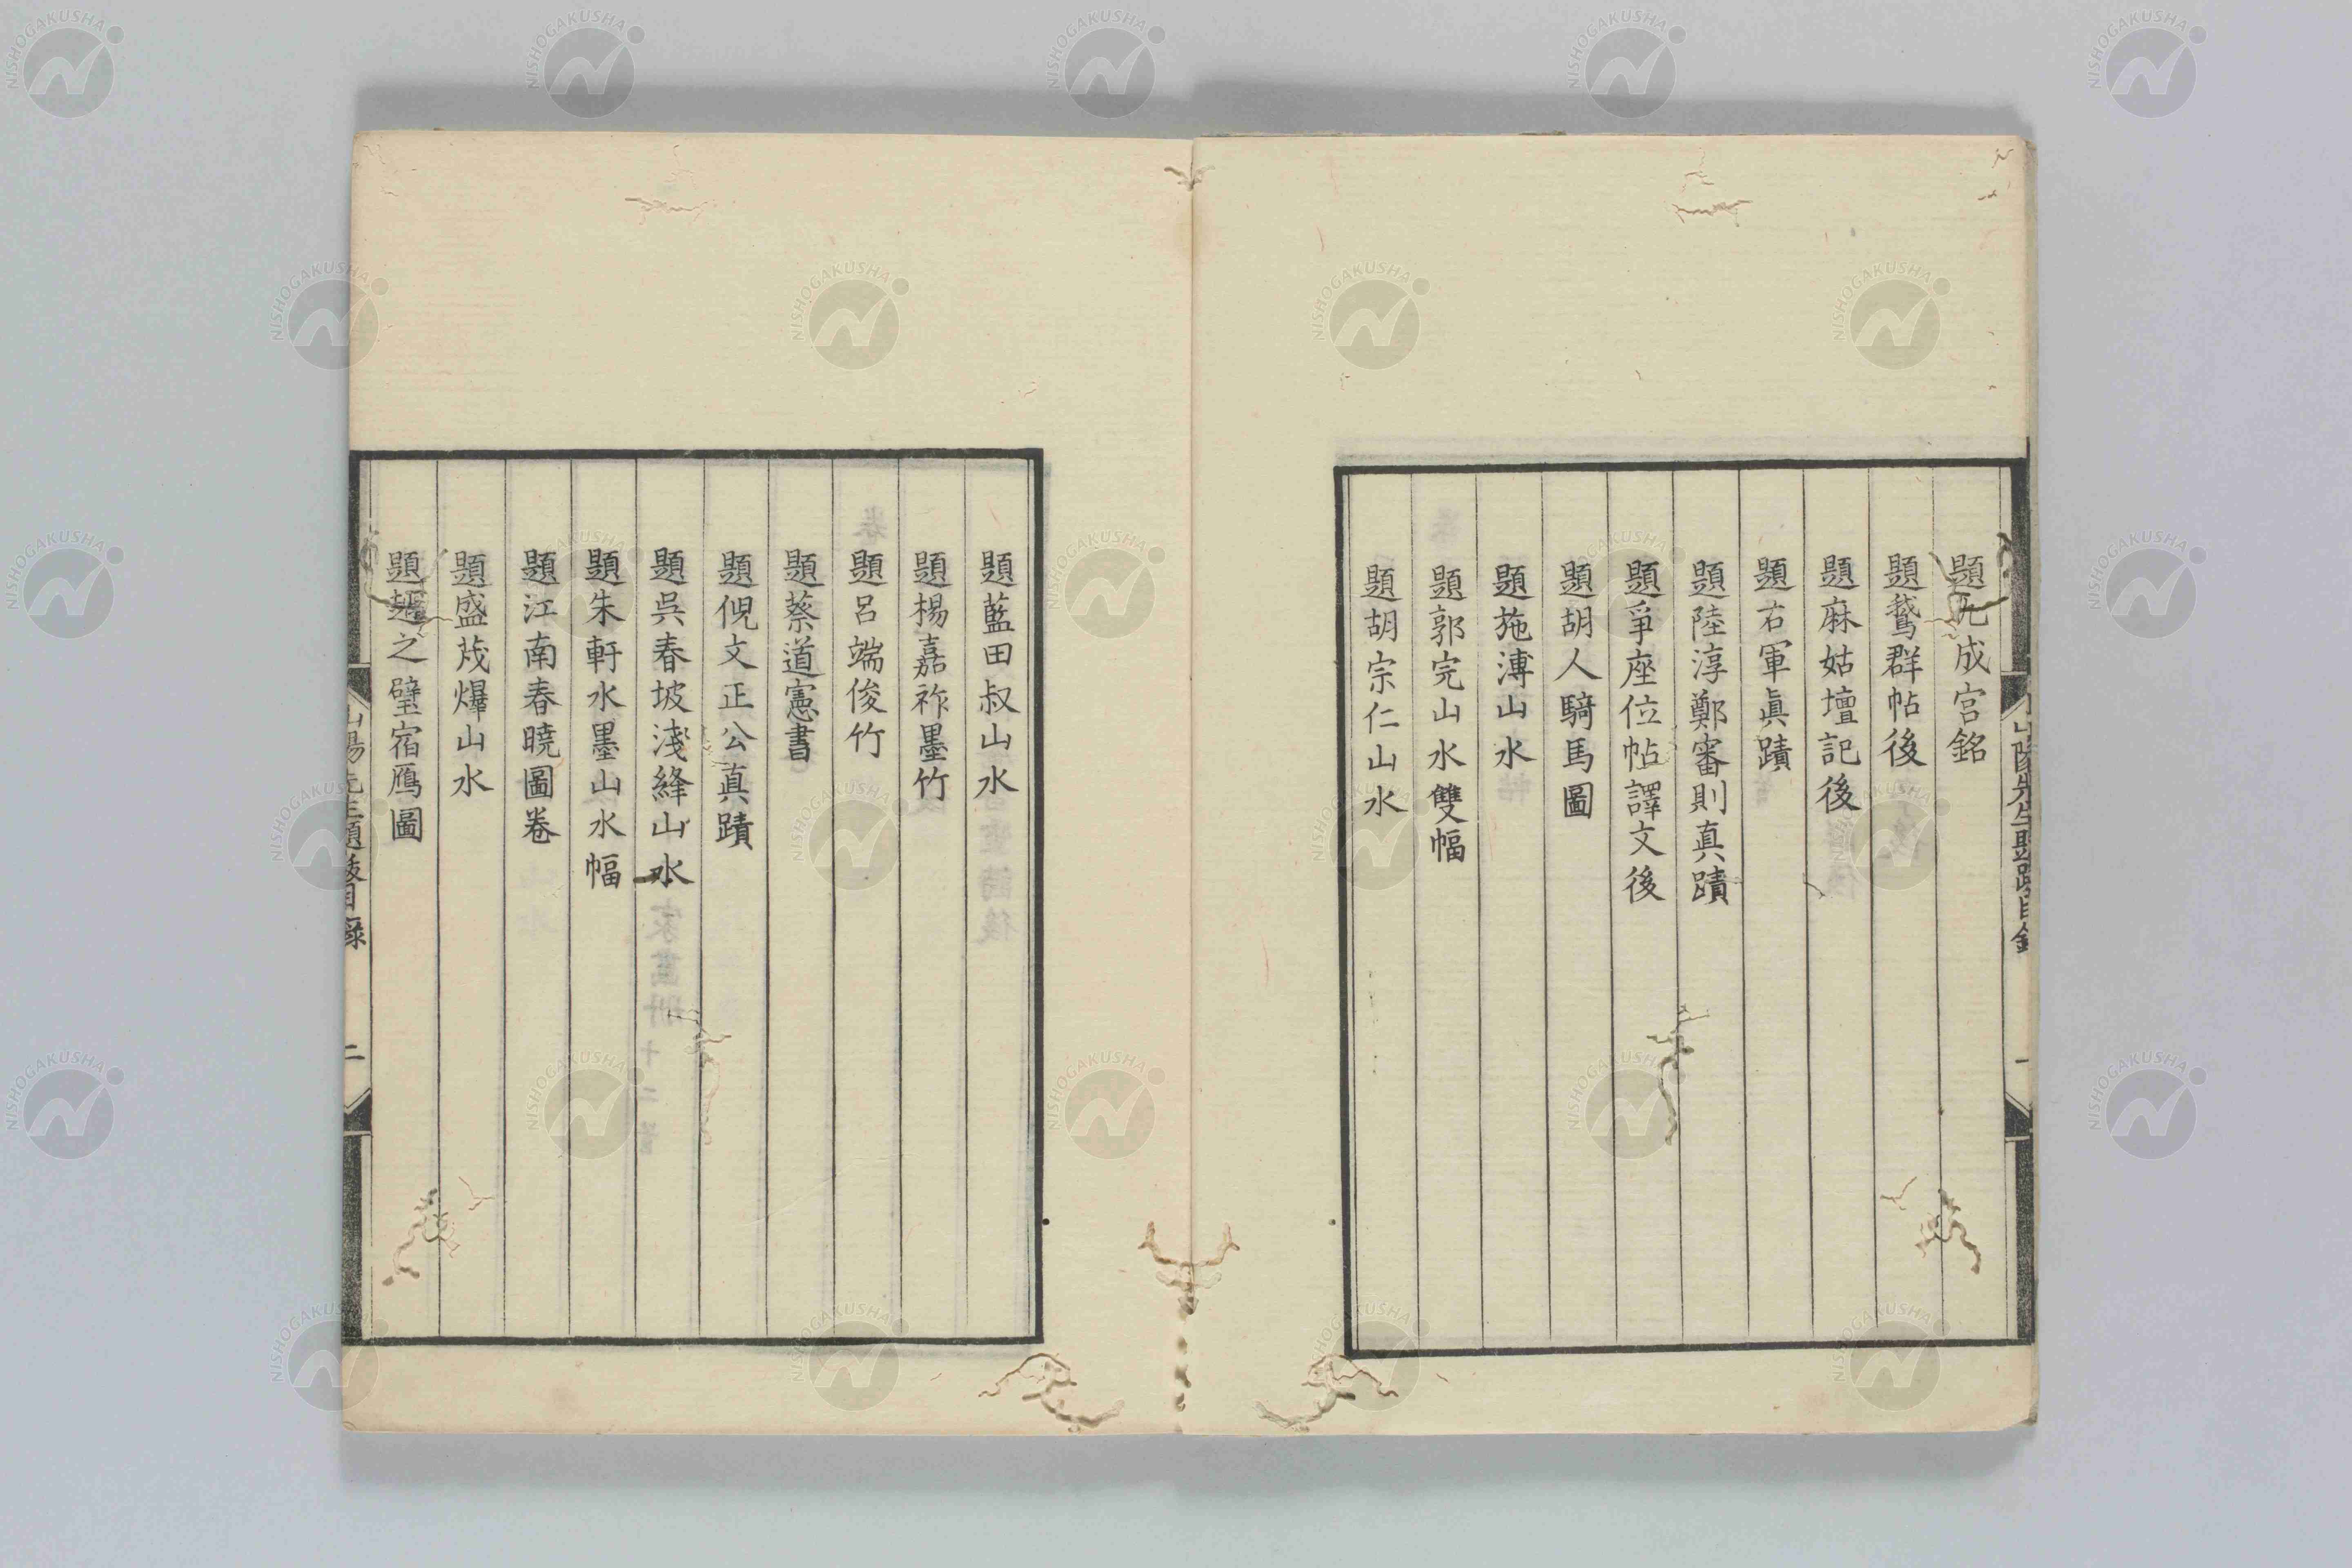 題九成宮銘
題鵞群帖後
題麻姑壇記後
題右軍眞蹟
題陸淳鄭審則真蹟
題爭座位帖譯文後
題胡人騎馬圖
題施溥山水
題郭完山水雙幅
題胡宗仁山水
山陽先生題跋目錄
一
題藍田叔山水
題楊嘉祚墨竹
題呂端俊竹
題蔡道憲書
題倪文正公真蹟
題吳春坡淺絳山水
題朱軒水墨山水幅
題江南春曉圖卷
題盛茂爗山水
題趙之璧宿鴈圖
山陽先生題跋目錄
二
NISHOGAKUSHA